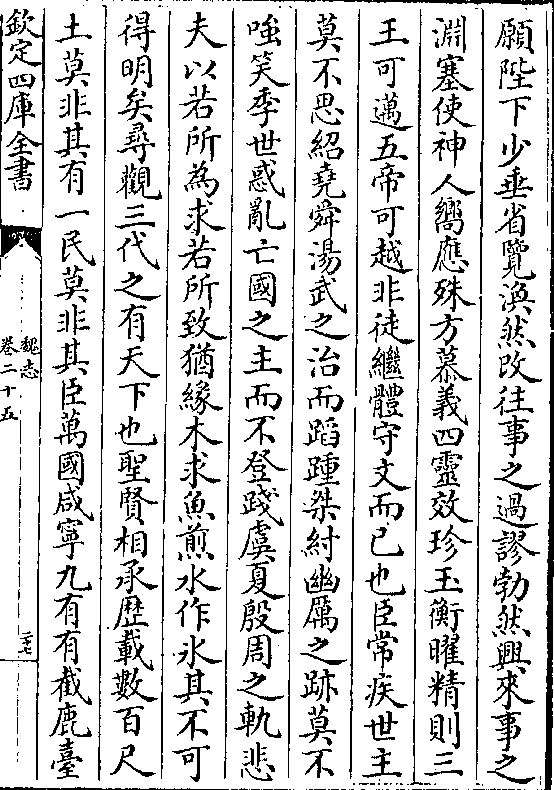 願陛下少垂省覽渙然改往事之過謬勃然興來事之
淵塞使神人嚮應殊方慕義四靈效珍玉衡曜精則三
王可邁五帝可越非徒繼體守文而已也臣常疾世主
莫不思紹堯舜湯武之治而蹈踵桀紂幽厲之跡莫不
嗤笑季世惑亂亡國之主而不登踐虞夏殷周之軌悲
夫以若所為求若所致猶緣木求魚煎水作氷其不可
得明矣尋觀三代之有天下也聖賢相承歴載數百尺
土莫非其有一民莫非其臣萬國咸寧九有有截鹿臺
欽定四庫全書
魏志
卷二十五
二十七